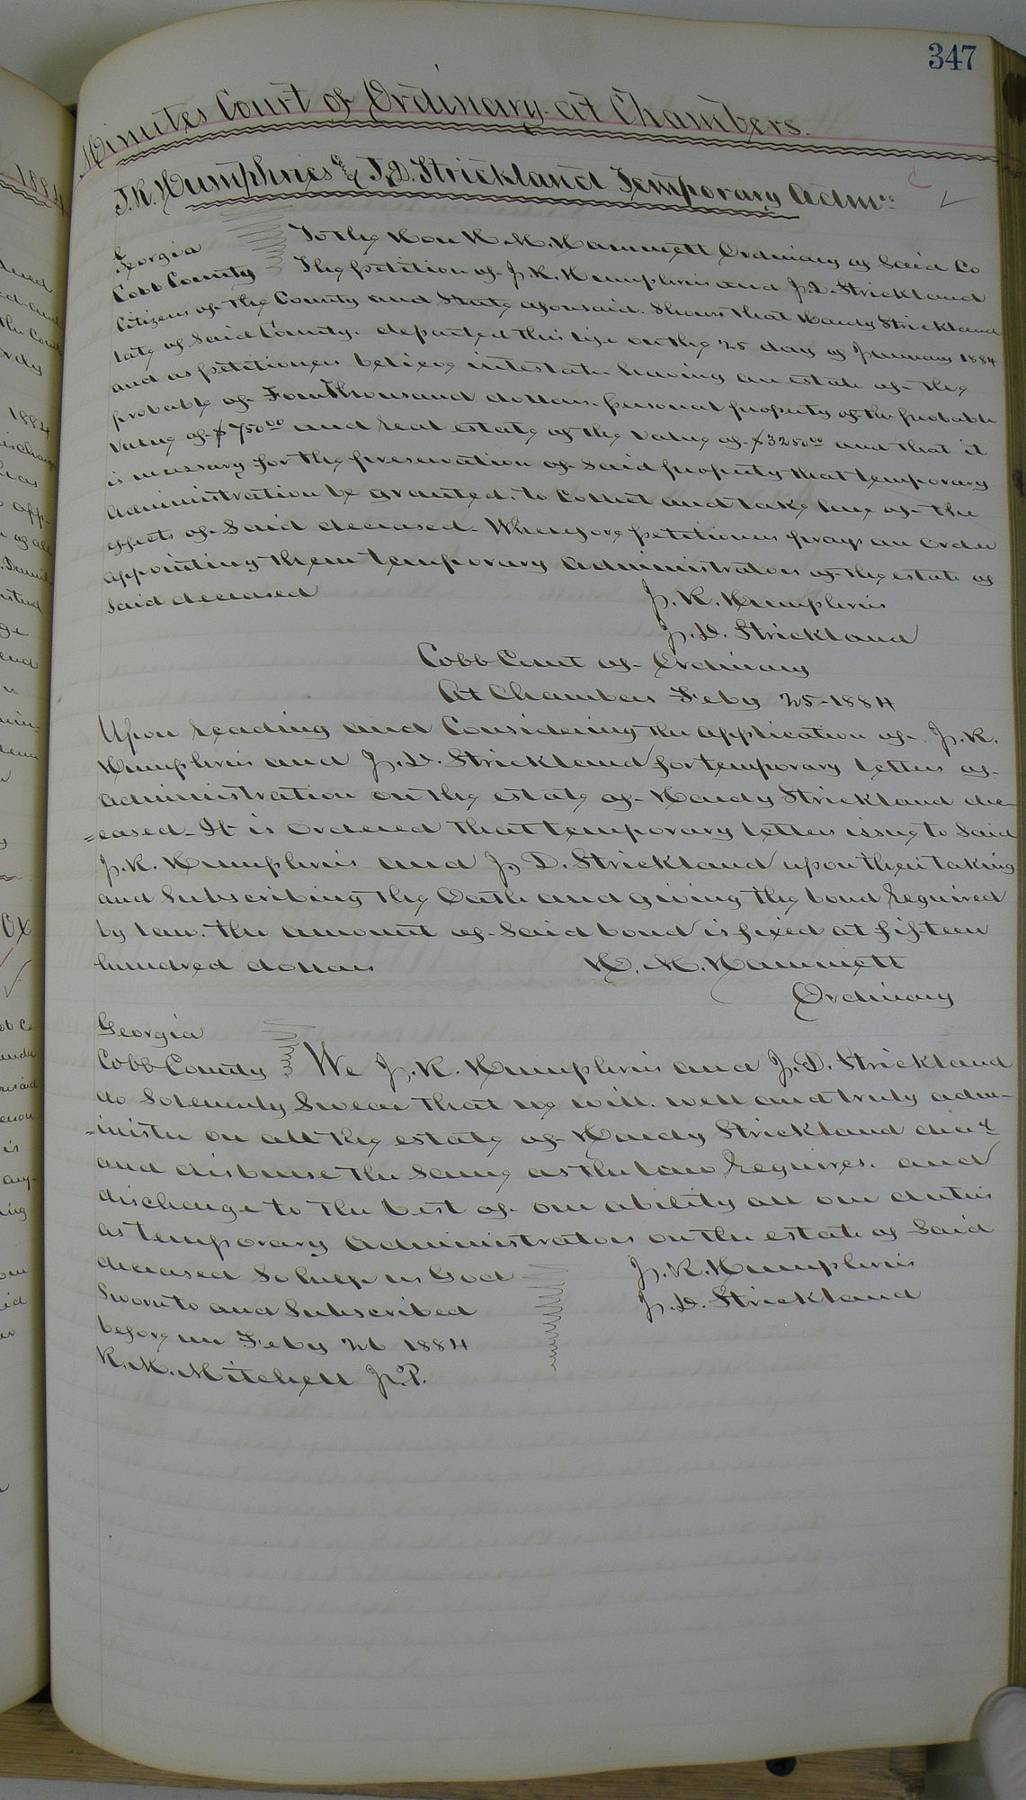 347
Minutes Court of Ordinary at Chambers.
J. R. Humphries & J. D. Strickland Temporary Admrs
Georgia
Cobb County
To the Hon H. M. Hammett Ordinary of Said Co
The petition of J. R. Humphries and J. D. Strickland
Citizens of the County and State aforesaid. Shows that Hardy Strickland
late of Said County. departed this life on the 25 day of January 1884
and as petitioners believe intestate having an estate of the
probable of Four Thousand dollars. personal property of the probable
Value of $750.00 and real estate of the value of $3250.00 and that it
is necessary for the preservation of said property that temporary
administration be granted. to collect and take care of the
effects of Said deceased. Wherefore petitioners prays an order
appointing them temporary administrators of the estate of
said deceased
J. R. Humphries
J. D. Strickland
Cobb Court of Ordinary
At Chambers Feby 25-1884
Upon reading and Considering the application of J. R.
Humphries and J. D. Strickland for temporary letters of
administration on the estate of Hardy Strickland de-
=ceased. It is Ordered That temporary letters issue to Said
J. R. Humphries and J. D. Strickland upon their taking
and Subscribing the Oath and giving the bond required
by law. the amount of said bond is fixed at fifteen
hundred dollars
H. M. Hammett
Ordinary
Georgia
Cobb County
We J. R. Humphries and J. D. Strickland
do Solemnly Swear that we will. well and truly adm-
=inister on all the estate of Hardy Strickland decd
and disburse the same as the law requires. and
discharge to the best of our ability all our duties
as temporary administrators on the estate of Said
deceased So help us God
J. R. Humphries
J. D. Strickland
Sworn to and Subscribed
before me Feby 26 1884
R. M. Mitchell J.P.